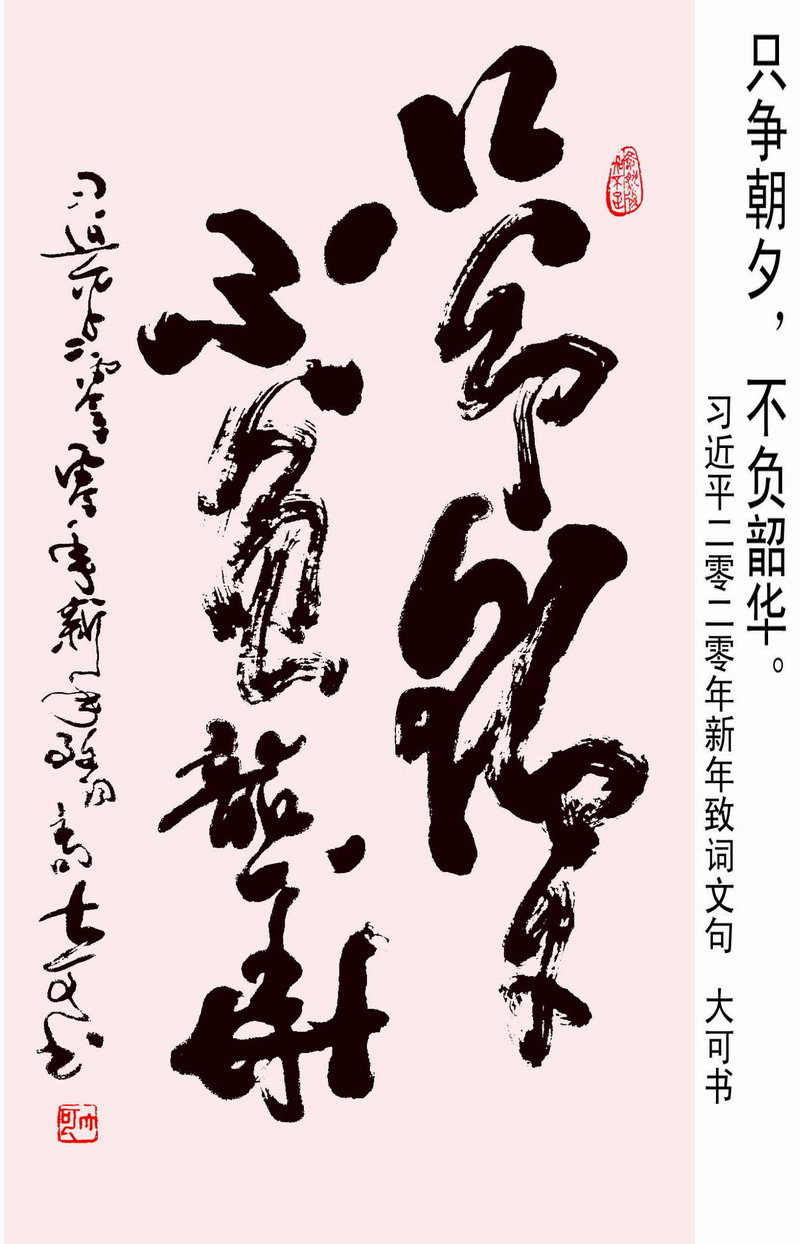 只争朝夕，不负韶华。
习近平二零二零年新年致词文句 大可书
只争朝夕
不負韶華
习近平二零二零年新年大可书